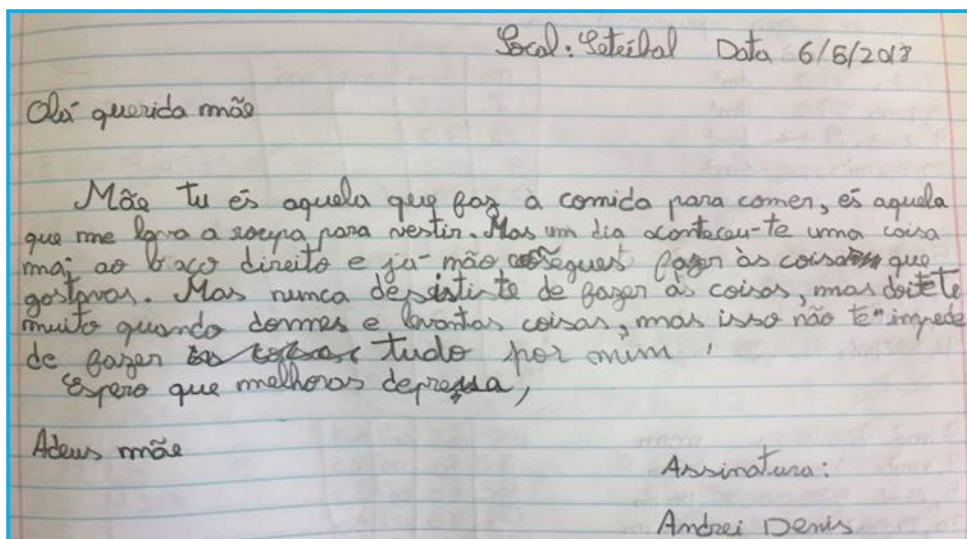 Local: Seteibal Data 6/6/2018
Olá querida mãe
Mãe tu és aquela que faz à comida para comer, és aquela
que me lava a roupa para vestir. Mas um dia aconteceu-te uma coisa
ao direito e já não fazer às que
gostavas. Mas nunca desististe de fazer às coisas, mas
muito quando dormes e levantas coisas, mas isso não te impede
de fazer tudo por mim,
Espero que melhoras depressa,
Adeus mãe
Assinatura:
Andrei Denis